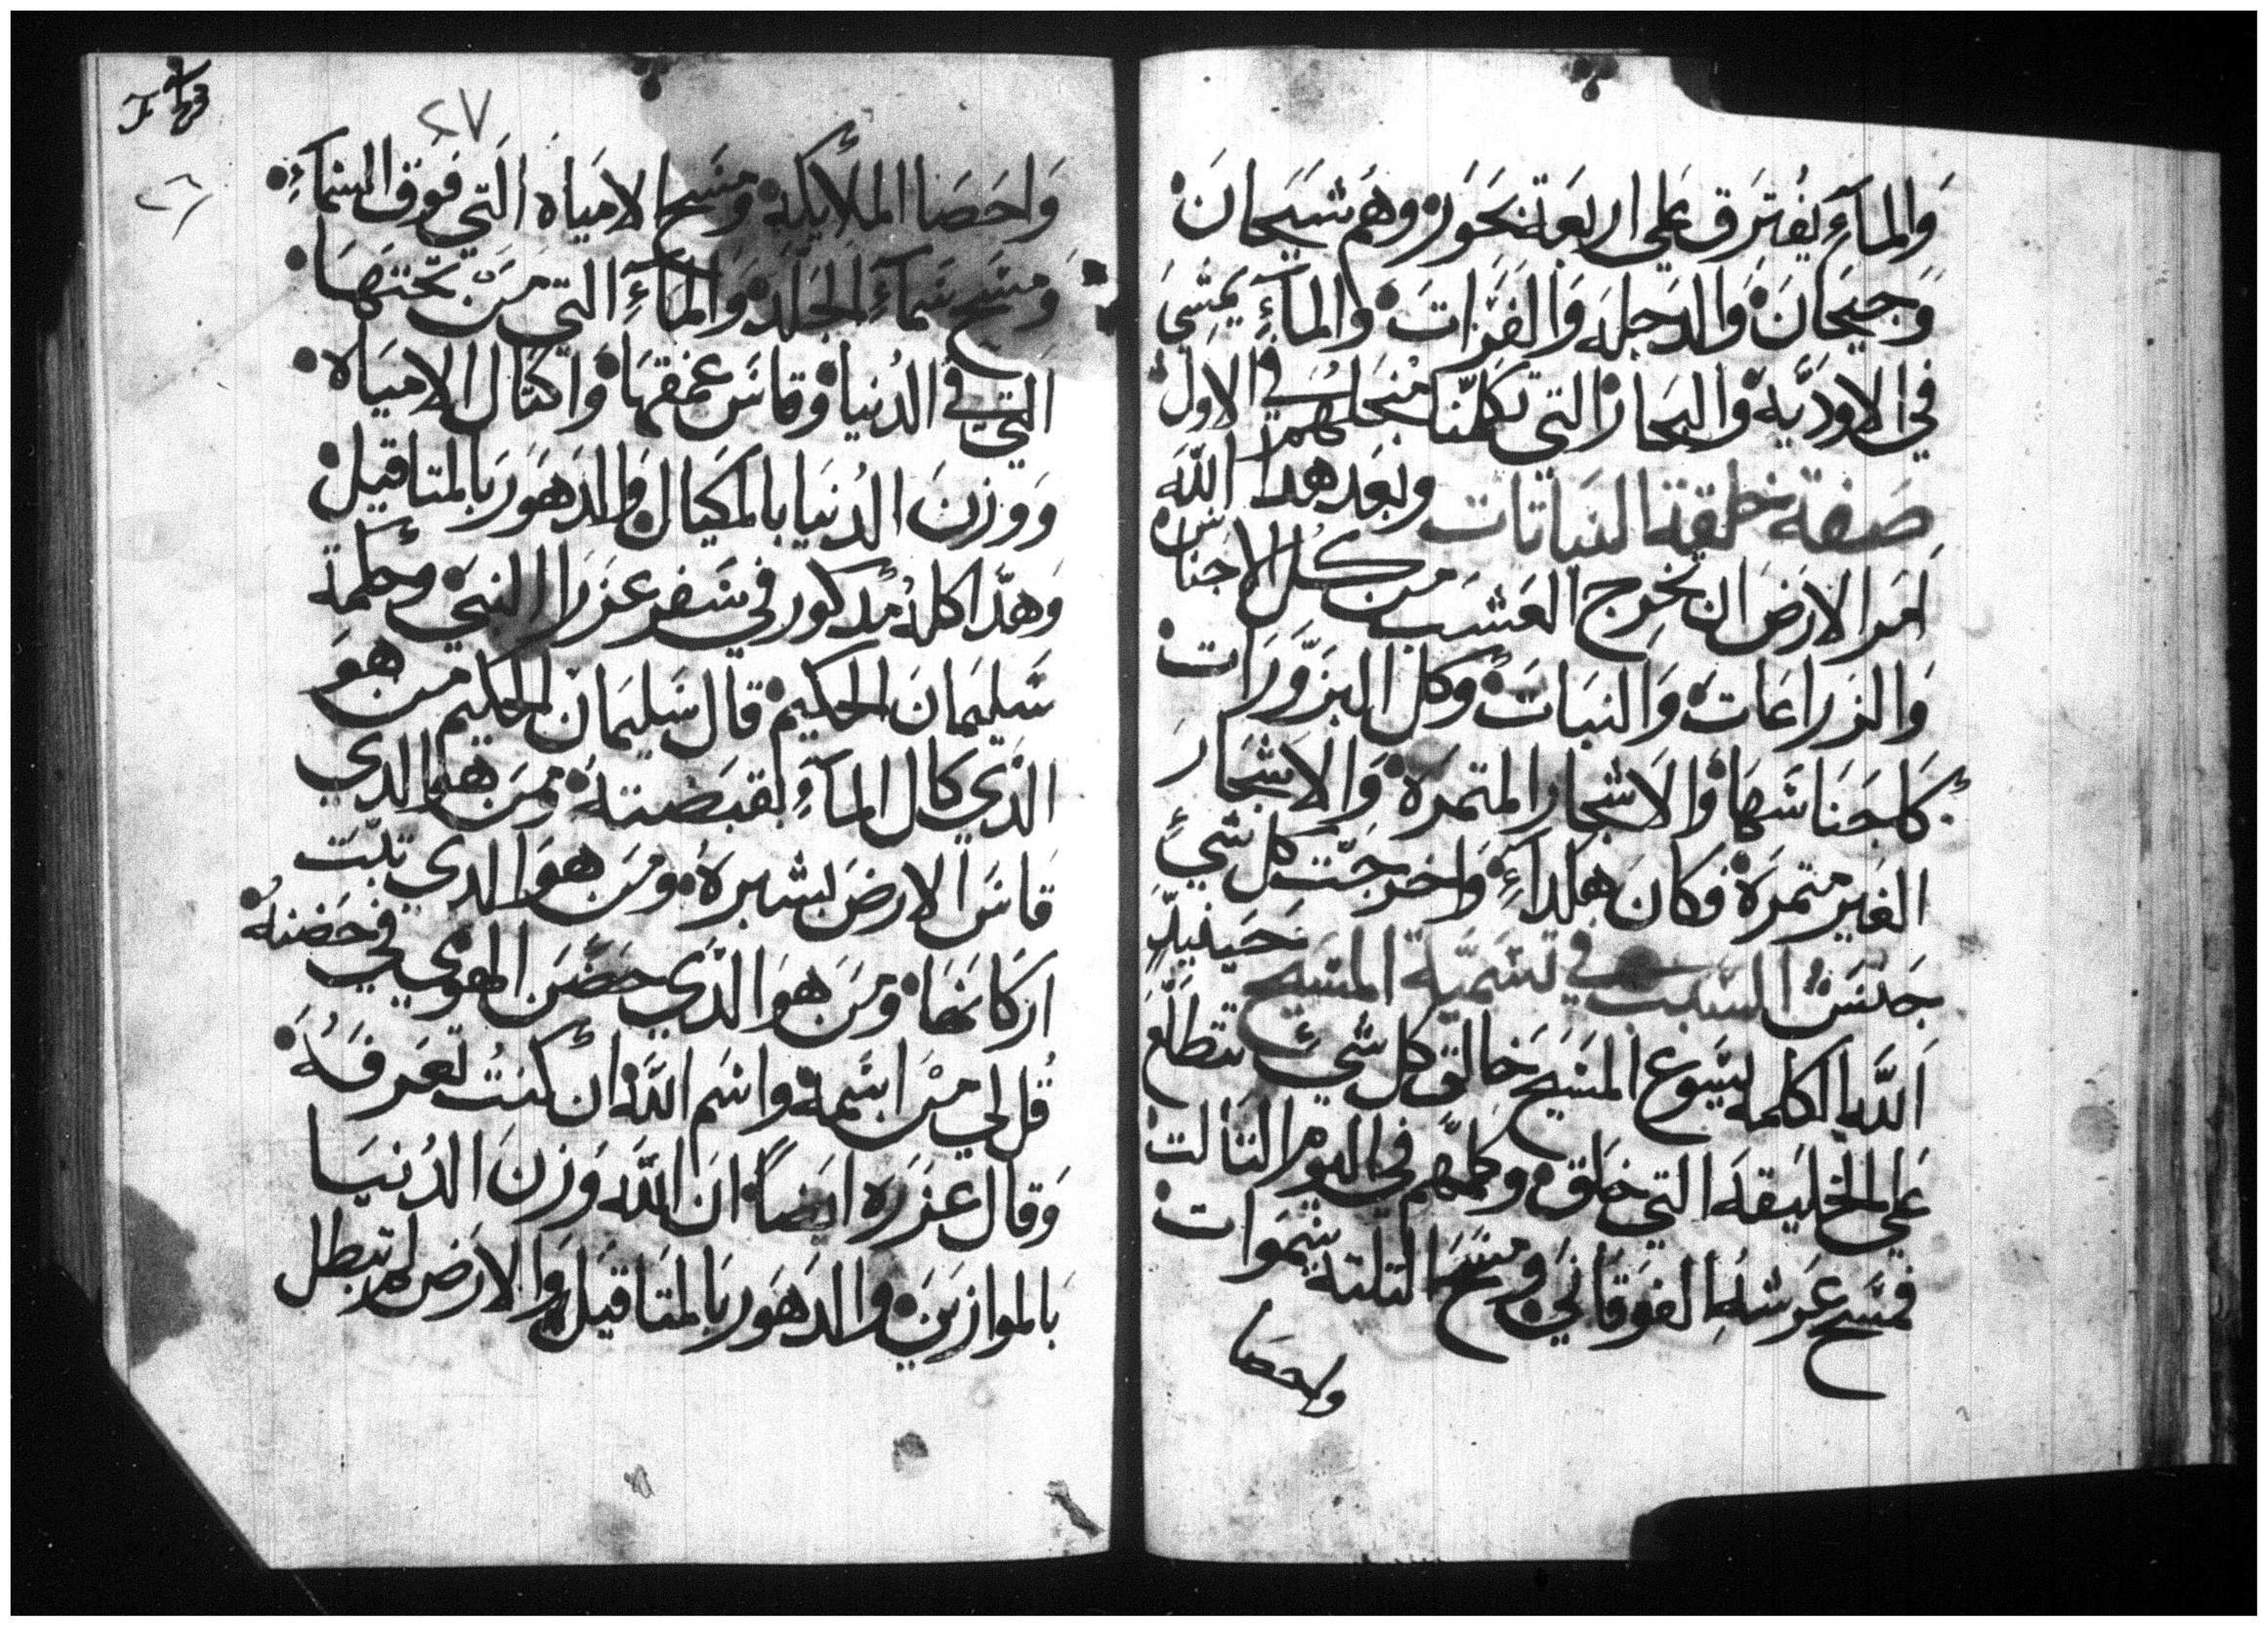 وَالمآءِ يَفترَق عَلي اربعَة بحَور وهَم شَيحَانَ
وَجيحَانَ وَالدَجلَه وَالفرَاتَ وَالمآءِ يمشَي
في الاودَيَه وَالبحَار التي تكلمَنَا مَنجلهم في الاول
صَفة خلقة النباتات وبَعَد هدا اللَه
اَمَر الارَضَ ان تخرِج العَشَب من كل الاجنَاس
وَالزرَاعَاتَ وَالنبَاتَ وكل البزَورَات
كاجَناسَهَا وَالاشجَار المتمرَة وَالاشجَارَ
الغَير متمرَة فكانَ هَكداءِ وَاخرَجَت كل شيءِ
جَنسَهُ السَبَب في تسَميَة المسَيح حَينيدٍ
اَللَه الكلمه يسَوع المسَيح خَالق كل شَيء تتطلَعَ
عَلي الخليقه التي خلَق وكلهَم في اليوم التالت
فمسَح عَرَشَه الفوَقاني وَمسَح التلته سَموَات
واحصَا
٤٧
وَاحصَا الملأيكه وَمسَح الامَياه التي فوق السَمآءِ
وَمسَح سَمآءِ الجَلَد وَالمآءِ التي مَن تحتهَا
التي في الدُنيا وَقاسَ عمقهَا وَاكتال الاميَاه
وَوزنَ الدُنيَا بالمكيَال وَالدَهَور بَالمتاقيل
وَهدَا كله مَدكور في سَفر عزرَا النبي وحكمة
سَليمَانَ الحكيم قال سَليمَان الحكيم من هوَ
الدَي كال المآءِ بقبَضته وَمَن هوَ الدي
قاسَ الارضَ بشبرَهُ وَمَن هوَ الدي تبَت
اركانَهَا وَمَن هوَ الدَي حضَن الهوي في حَضنهُ
قُل لي مَن اسَمه واسَم ابنَه ان كنتُ تعَرفهُ
وَقال عزرَه ايضَاً ان اللَه وَزنَ الدُنيَا
بَالموازينَ وَالدهَور بَالمتَاقيل وَالارَض لم تبطل